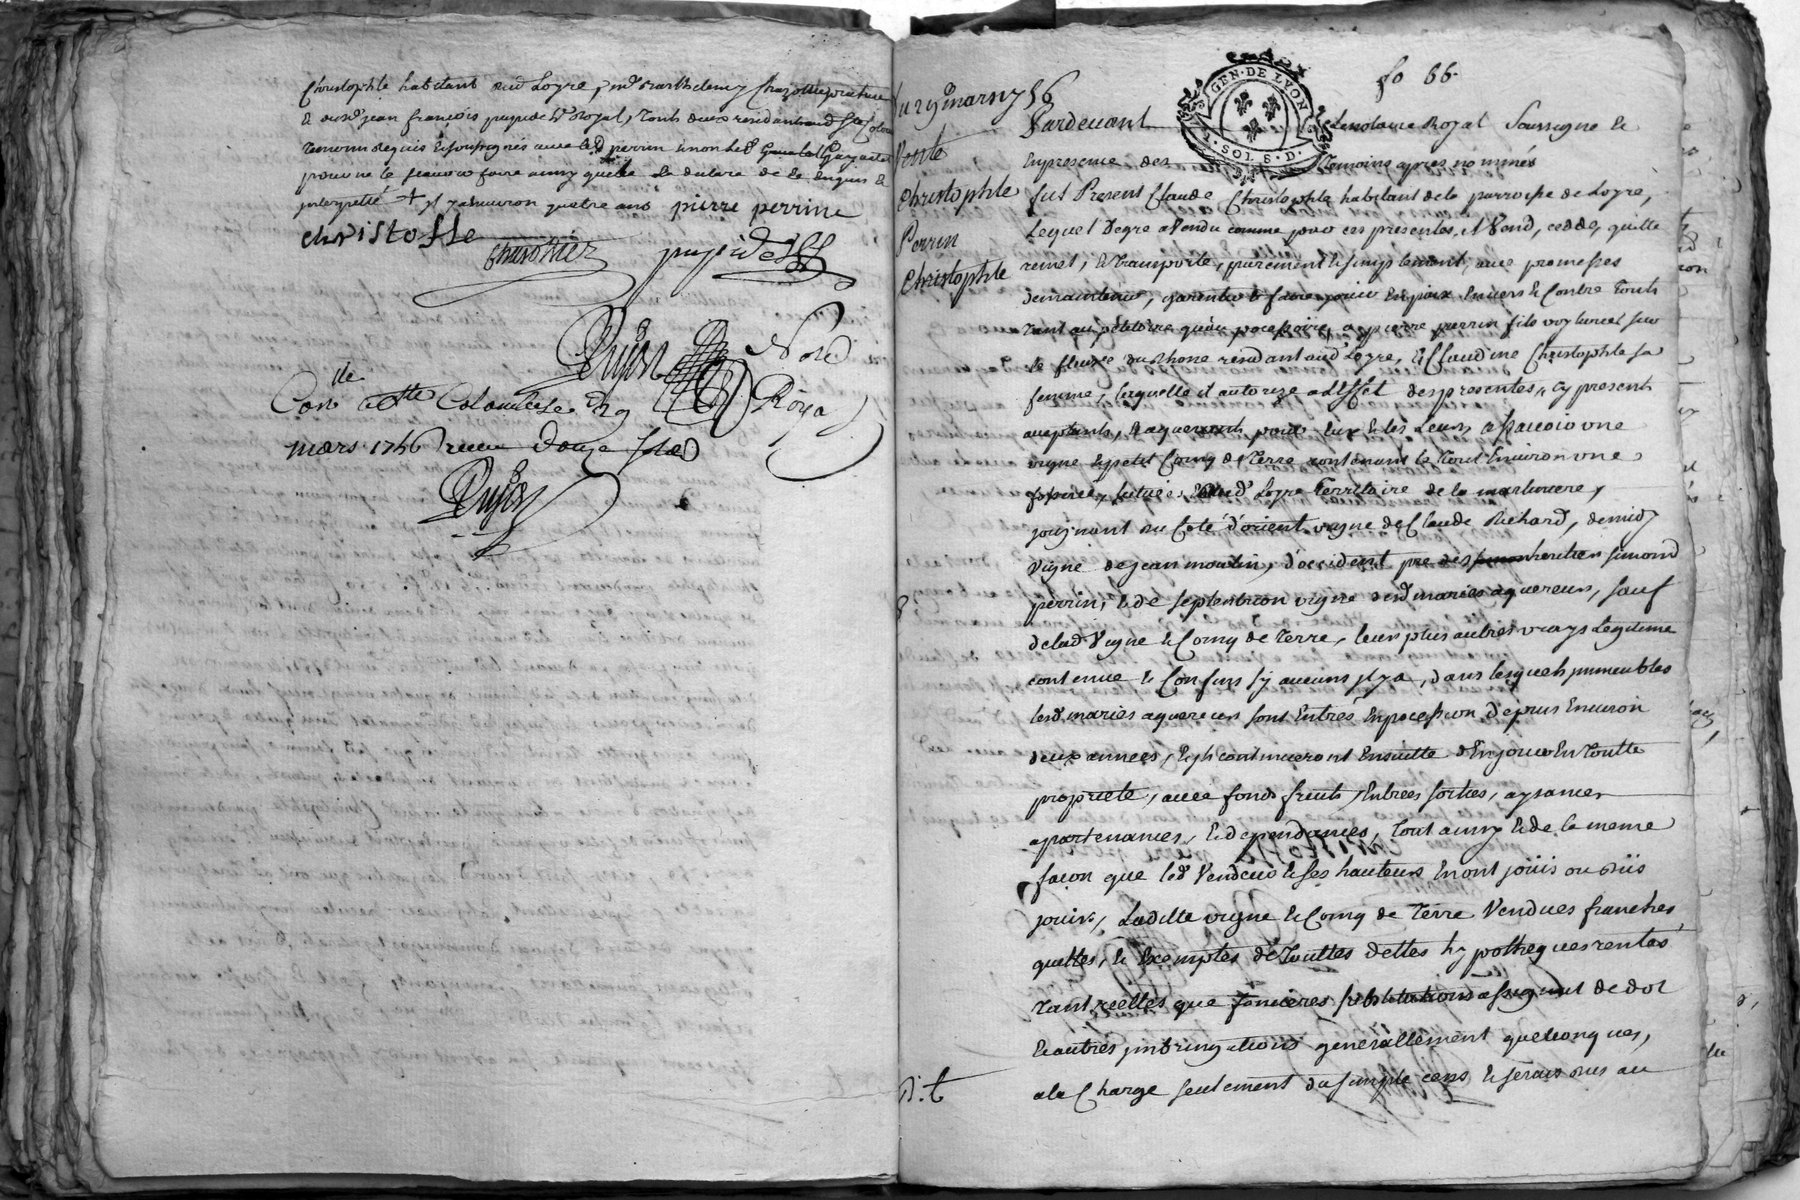 Christophle habitant aud Loyre, m.e Barthelemy
& aud.t jean françois royal, tous deux residants aud Ste Colombe
Temoins requis & soussignés avec led perrin & non led
pour ne le sçavoir faire ainsy quelle le declare de ce enquis &
interpellé + yl y a environ quatre ans pierre perrin
christofle
Dujon
Nore Royal
Con.lle a Ste Colombe le 29
mars 1756 receu Douze sols
Dujon
Du 29e mars 1756
Vente
Christophle
Perrin
Christophle
D.t
GEN. DE LYON
SOL 8 D.
fo 66.
Pardevant Le notaire Royal soussigne &
En presence des Temoins apres nommés
fut Present Claude Christophle habitant de la parroisse de Loyre,
Lequel Degre a Vendu comme par ces presentes, il Vend, cedde, quitte
remet, & transporte, purement & simplement, avec promesses
de maintenir, garentir & faire jouir En paix Envers & Contre Touts
Tant au petitoire qu'au possessoire, a pierre perrin fils voyturier sur
le fleuve du Rhone residant aud Loyre, & Claudine Christophle sa
femme, Laquelle il autorize a l'effet des presentes, cy presents
acceptants, & aquereurs pour Eux & les Leurs, a sçavoir une
vigne & petit Coing de Terre contenant le Tout Environ une
fosserée, scituée aud Loyre Territoire de la
joignant du Coté d'orient vigne de Claude Richard, de midy
vigne de jean moulin, d'occident pré des heritiers simond
perrin, & de septentrion vigne desd mariés aquereurs, sauf
de lad Vigne & Coing de Terre, leurs plus autres vrays Legitime
contenue & Confins sy aucuns yl y a, dans lesquels jmmeubles
lesd. mariés aquereurs sont Entrés En possession depuis Environ
deux années, & yls continueront Ensuitte d'En jouir En Toutte
proprieté, avec fonds fruits, Entrées sorties, aysances
apartenances, & dependances, Tout ainsy & de la meme
façon que led Vendeur & ses hauteurs En ont joüis ou dûs
jouir, Ladite vigne & Coing de Terre Vendues franches
quittes, & Exemptes de Touttes dettes hypotheques rentes
Tant reelles que foncieres substitutions assignat de dot
& autres jmbringations generallement quelconques,
a la Charge seulement du simple cens & servis dus au